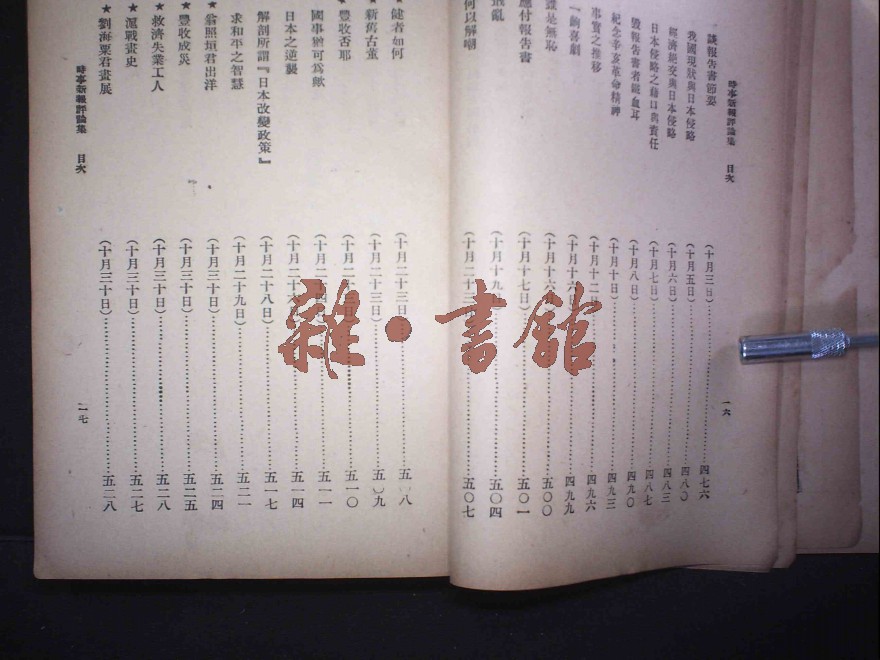 時事新報評論集 目次 一六
談報告書節要 (十月三日)……四七六
我國現狀與日本侵略 (十月五日)……四八〇
經濟絕交與日本侵略 (十月六日)……四八三
日本侵略之藉口與責任 (十月七日)……四八七
毀報告書者鐵血耳 (十月八日)……四九〇
紀念辛亥革命精神 (十月十日)……四九三
事實之推移 (十月十二日)……四九六
一齣喜劇 (十月十六日)……四九九
誰是無恥 (十月十六日)……五〇〇
應付報告書 (十月十七日)……五〇一
亂 (十月十九日)……五〇四
何以解嘲 (十月二十三日)……五〇七
★健者如何 (十月二十三日)……五〇八
★新舊古董 (十月二十三日)……五〇九
★豐收否耶 (十月二十日)……五一〇
國事猶可為歟 (十月二十日)……五一一
日本之逆襲 (十月二十日)……五一四
解剖所謂『日本改變政策』 (十月二十八日)……五一七
求和平之智慧 (十月二十九日)……五二一
★翁照垣君出洋 (十月三十日)……五二四
★豐收成災 (十月三十日)……五二五
★救濟失業工人 (十月三十日)……五二八
★滬戰畫史 (十月三十日)……五二七
★劉海粟君畫展 (十月三十日)……五二八
時事新報評論集 目次 一七
雜·書館